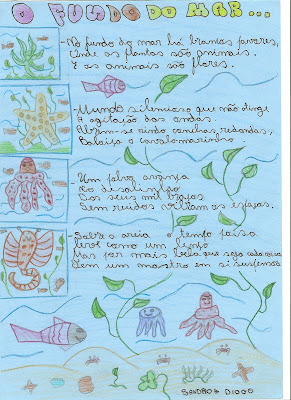 O FUNDO DO MAR...
-No fundo do mar há brancos pavores,
Onde as plantas são animais.
E os animais são flores.
-Mundo silencioso que não atinge
A agitação das ondas.
Abrem-se rindo conchas redondas,
Baloiça o cavalo-marinho.
Um polvo avança
No desalinho
Dos seus mil braços
Sem ruídos vibram os espaços.
-Sobre a areia o tempo poisa
Leve como um lenço
Mas por mais bela que seja cada coisa
Tem um monstro em si suspenso
SANDRO e DIOGO